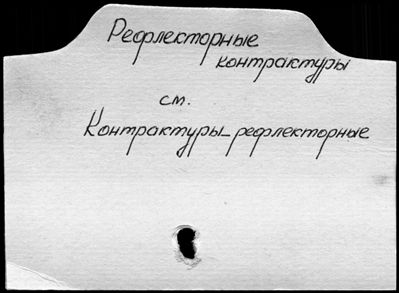 Рефлекторные
контрактуры
см.
Контрактуры рефлекторные